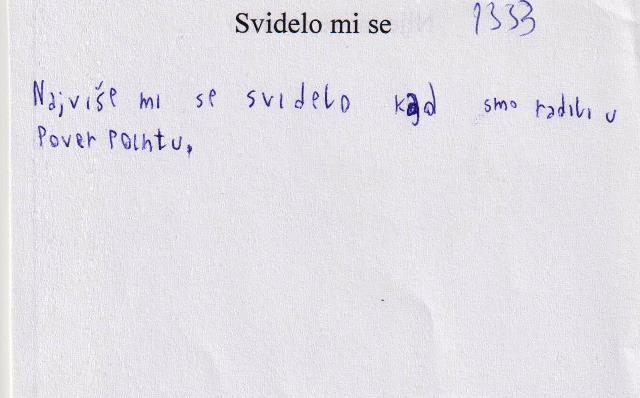 Svidelo mi se 1333
Najviše mi se svidelo kad smo radili u
Pover Pointu.